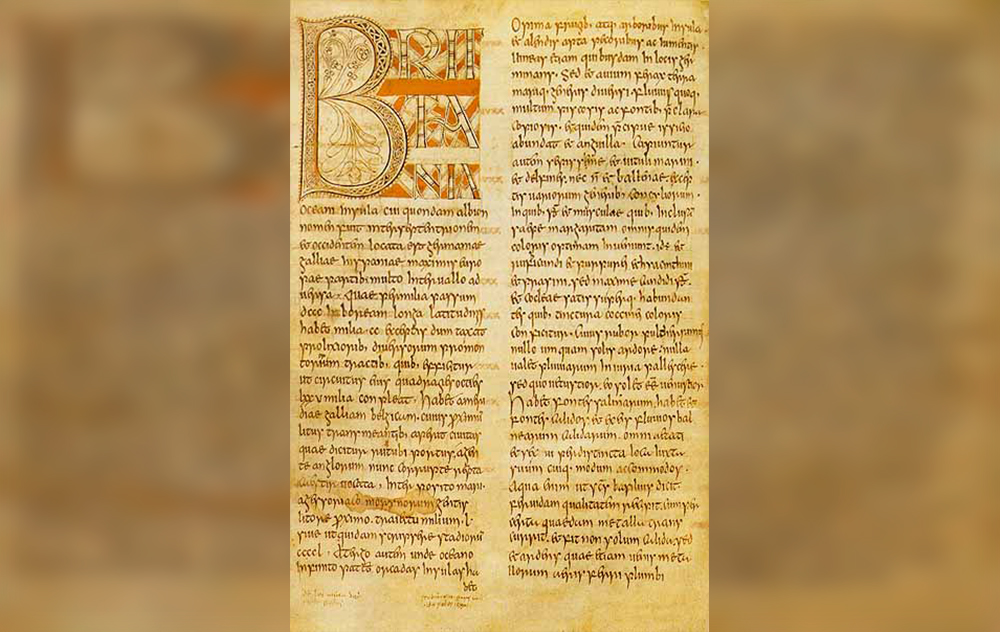 BRIT
TA
NIA
Oceani insula cui quondam albion
nomen fuit inter septentrionem
et occidentem locata est germaniae
galliae hispaniae maximis euro
pae partib; multo interuallo ad
uersa. Quae per milia passuum
dccc in boream longa latitudinis
habet milia. cc exceptis dum taxat
prolixiorib; diuersorum promon
toriorum tractib; quib; efficitur
ut circuitus eius quadragies octies
lxxv milia conpleat. Habet a meri
diae galliam belgicam. cuius proximū
litus transmeantibus aperit ciuitas
quae dicitur rutubi portus. a gen
te anglorum nunc corrupte
uocata, interposito mari.
a gessoriaco morinorum gentis
litore proximo. traiectu milium. l.
siue ut quidam scripsere stadiorū
ccccl. A tergo autem unde oceano
infinito patet orcadas insulas ha
bet
Opima frugib. atq; arborib; insula.
et alendis apta pecorib; ac iumentis
uineas etiam quibusdam in locis ger
minans. Sed et auium ferax terra
mariq; generis diuersi fluuiis quoq;
multum piscosis ac fontib; p̄clara
copiosis. et quidem p̄cipue issicio
abundat et anguilla. Capiuntur
autem sepissime et uituli marini
et delfines. nec n̄ et ballenae. excep
tis uariorum generib; concyliorum
in quib; s̄t et musculae quib; inclusā
saepe margaritam omnis quidem
coloris optimam inueniunt. id ē et
rubicundi et purpurei et hyacinthini
et prasini. sed maxime candidi. s̄t
et cocleae satis superq; habundan
tes quib; tinctura coccinei coloris
conficitur. Cuius rubor pulcherrimus
nullo umquam solis ardore. nulla
ualet pluuiarum iniuria pallescere.
sed quo uetustior. eo solet e͞e uenustior
Habet fontes salinarum. habet et
fontes calidos. et ex eis fluuios bal
nearum calidarum. omni aetati
et sexu per distincta loca iuxta
suum cuiq; modum accommodos.
Aqua enim ut scs̄ basilius dicit
feruidam qualitatem recipit. cum per
certa quaedam metalla trans
currit. et fit non solum calida. sed
et ardens quae etiam uenis metal
lorum aeris ferri plumbi